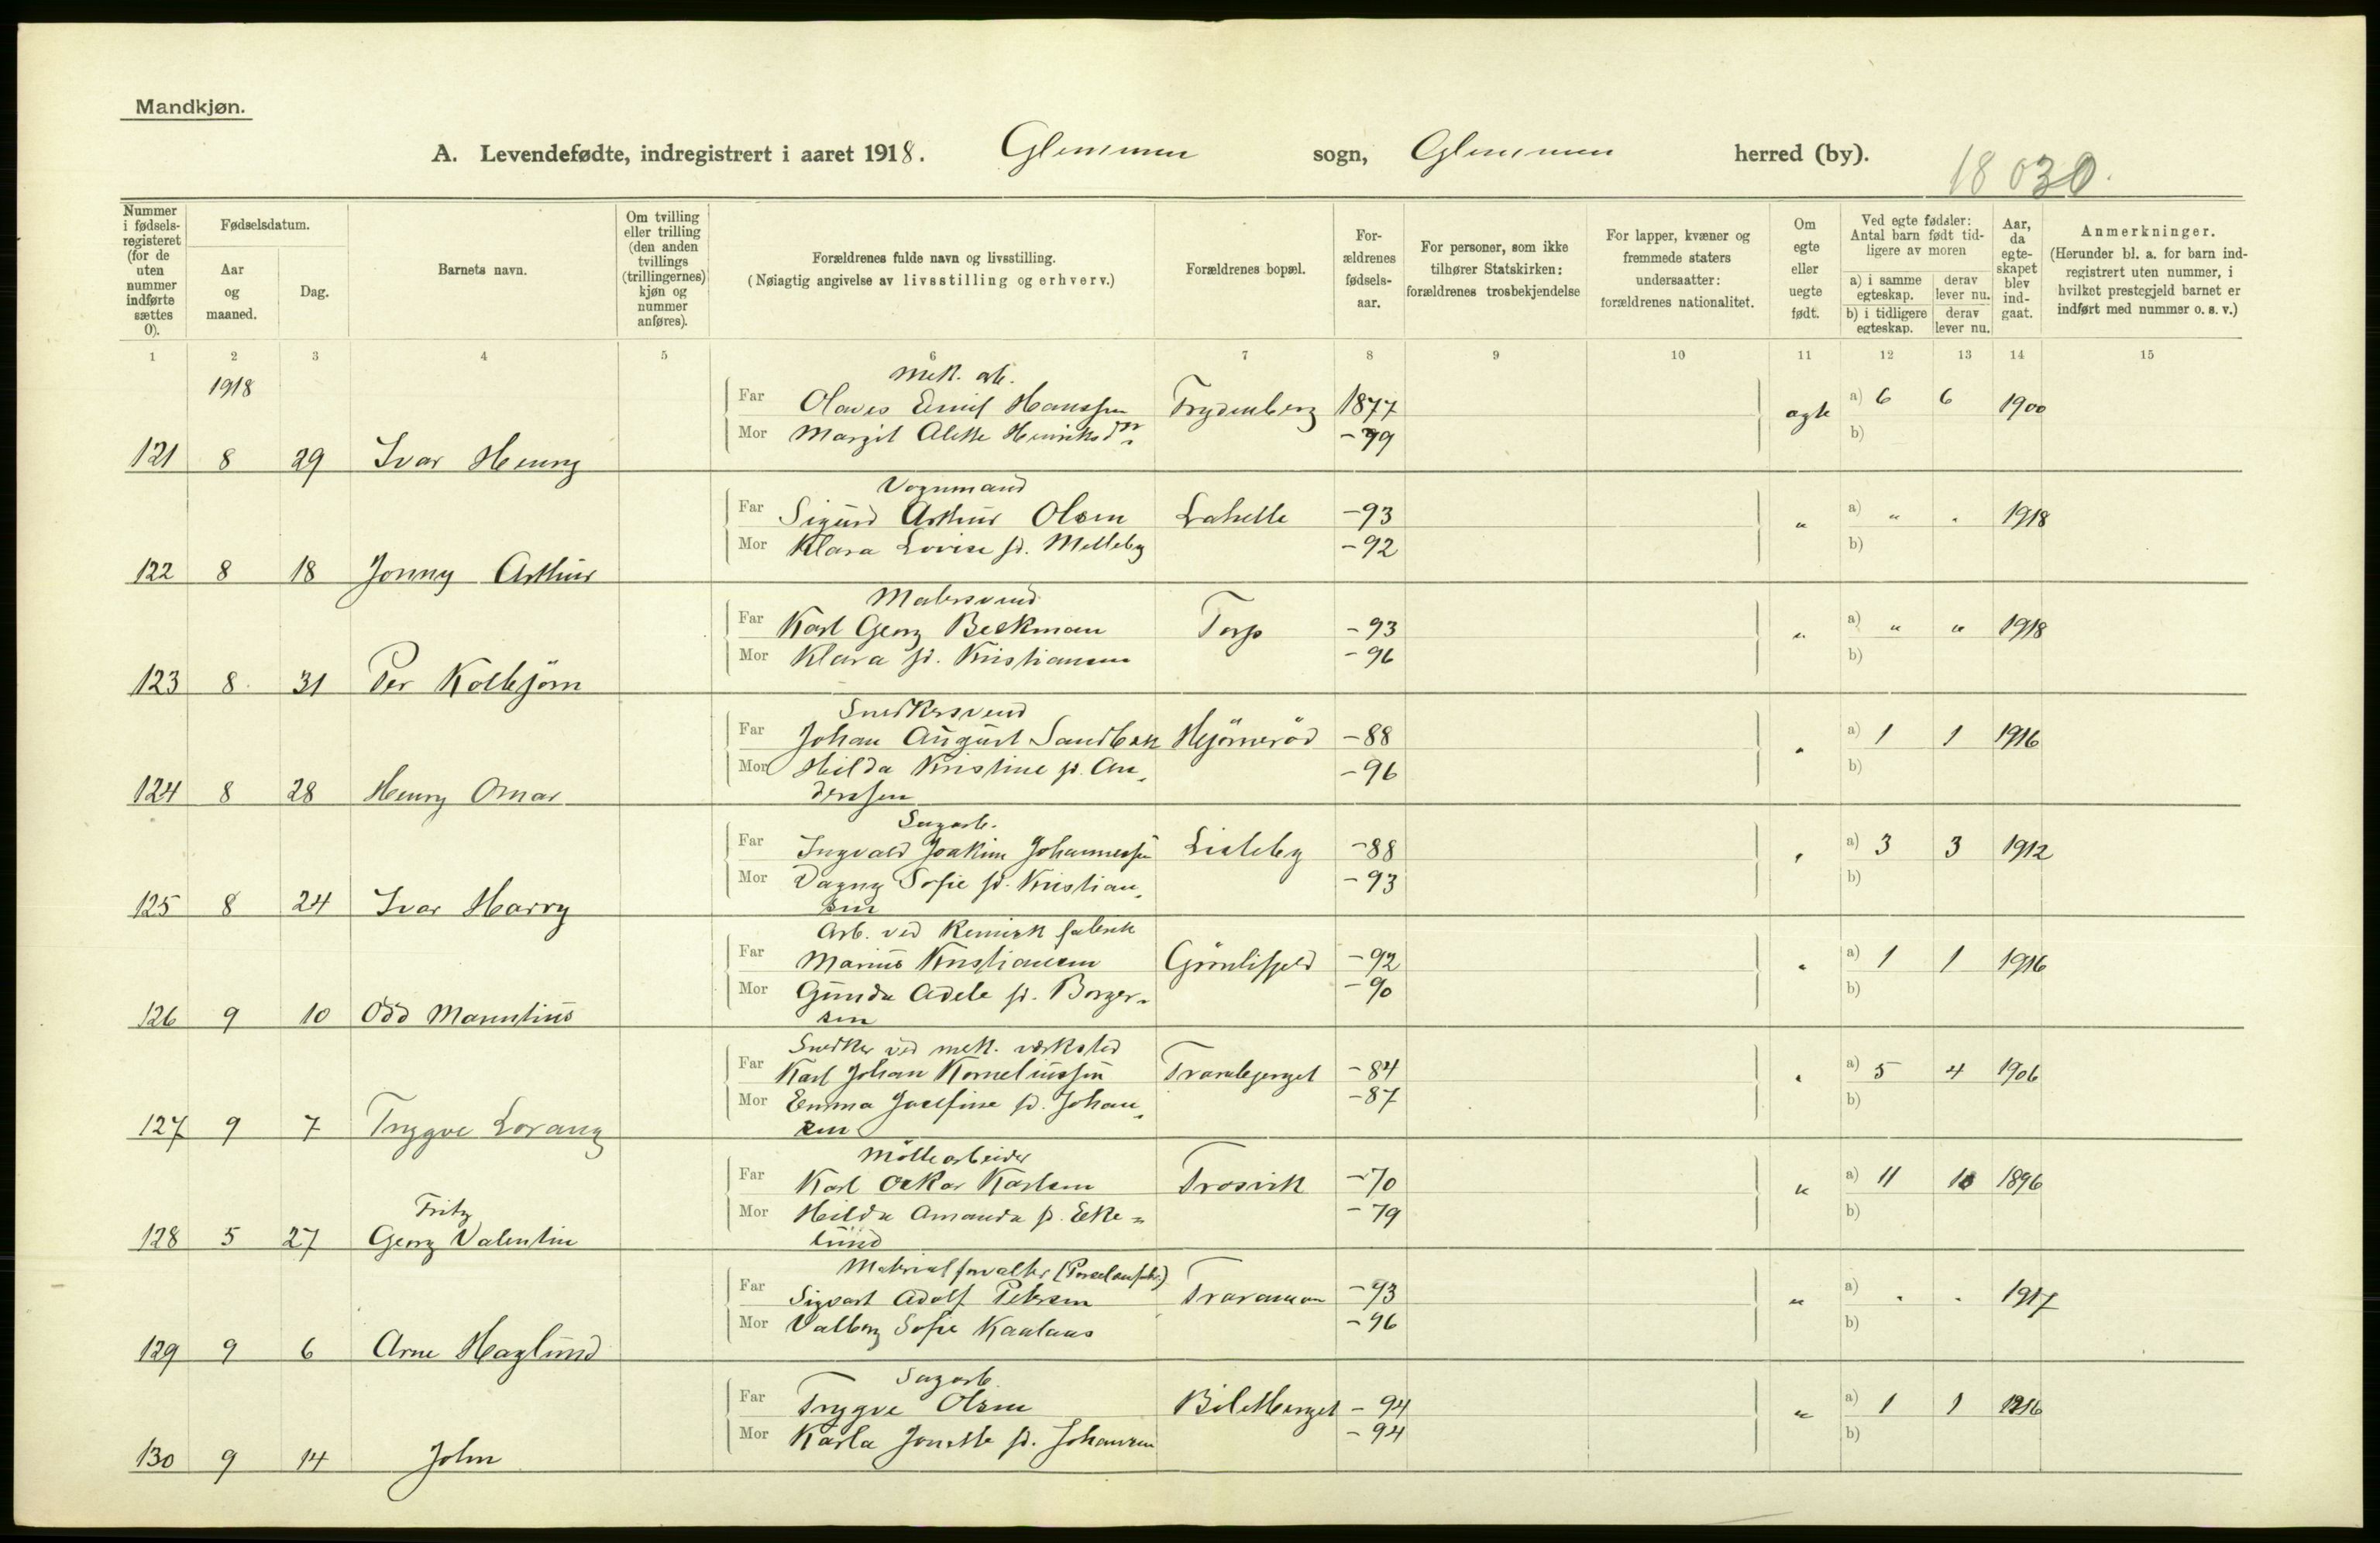 Mandkjøn.
A. Levendefødte, indregistrert i aaret 1918. Glemmen sogn, Glemmen herred (by). 18 030.
Nummer i fødselsregisteret (for de uten nummer indførte sættes 0).
Fødselsdatum.
Aar og maaned.
Dag.
Barnets navn.
Om tvilling eller trilling (den anden tvillings (trillingernes) kjøn og nummer anføres).
Forældrenes fulde navn og livsstilling.
(Nøiagtig angivelse av livsstilling og erhverv.)
Forældrenes bopæl.
Forældrenes fødselsaar.
For personer, som ikke tilhører Statskirken: forældrenes trosbekjendelse
For lapper, kvæner og fremmede staters undersaatter: forældrenes nationalitet.
Om egte eller uegte født.
Ved egte fødsler: Antal barn født tidligere av moren
a) i samme egteskap. derav lever nu.
b) i tidligere egteskap. derav lever nu.
Aar, da egteskapet blev indgaat.
Anmerkninger.
(Herunder bl. a. for barn indregistrert uten nummer, i hvilket prestegjeld barnet er indført med nummer o. s. v.)
1 2 3 4 5 6 7 8 9 10 11 12 13 14 15
1918 Mek. arb.
Far Olaves Emil Hanssen Trydenberg 1877 a) 6 6 1900
Mor Margit Alette Henriksdtr - 79 ægte b)
121 8 29 Ivar Henry
Vognmand
Far Sigurd Arthur Olsen Lahelle -93 " a) " " 1918
Mor Klara Lovise fd. Melleby -92 b)
122 8 18 Jonny Arthur
Malersvend
Far Karl Georg Beckman Torp -93 " a) " " 1918
Mor Klara fd. Kristiansen -96 b)
123 8 31 Per Kolbjörn
Snedkersvend
Far Johan August Sandbæk Hjörneröd -88 " a) 1 1 1916
Mor Hilda Kristine fd. An- -96 b)
derssen
124 8 28 Henry Omar
Sagarb.
Far Ingvald Joakim Johannessen Lisleby -88 " a) 3 3 1912
Mor Dagny Sofie fd. Kristian- -93 b)
sen
125 8 24 Ivar Harry
Arb. ved kemisk fabrik
Far Marius Kristiansen Grönlifjeld -92 " a) 1 1 1916
Mor Gunda Adele fd. Borger- -90 b)
sen
126 9 10 Odd
Snedker ved mek. værksted
Far Karl Johan Korneliussen Trarabjerget -84 " a) 5 4 1906
Mor Emma Josefine fd. Johan- -87 b)
sen
127 9 7 Trygve Lorang
Möllearbeider
Far Karl Oskar Karlsen Trosvik -70 " a) 11 10 1896
Mor Hilda Amanda fd. Eke- -79 b)
lund
Fritz
128 5 27 Georg Valentin
Materialforvalter (Porcelænsfabr.)
Far Sigvart Adolf Petersen Traramoen -93 " a) " " 1917
Mor Valborg Sofie -96 b)
129 9 6 Arne Haglund
Sagarb.
Far Trygve Olsen Biletberget - 94 " a) 1 1 1916
Mor Karla Jonette fd. Johansen - 94 b)
130 9 14 John